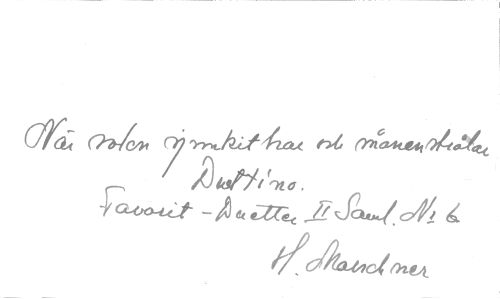 När solen sjunkit har och månen strålar
Duettino.
Favorit - Duetter II Saml. No 6
H. Marschner